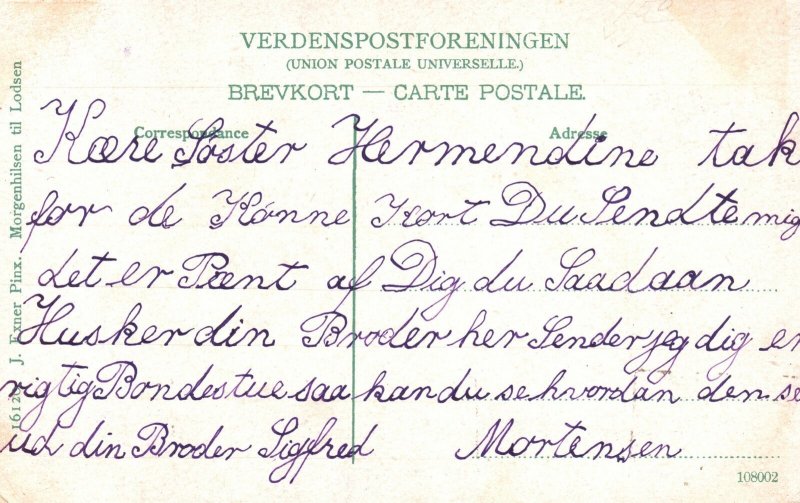 VERDENSPOSTFORENINGEN
(UNION POSTALE UNIVERSELLE.)
BREVKORT — CARTE POSTALE.
Correspondance
Adresse
Kære Søster Hermendine tak
for de Kønne Kort Du Sendte mig
det er Pænt af Dig du Saadaan
Husker din Broder her Sender jeg dig en
rigtig Bondestue saa kan du se hvordan den se
ud din Broder Sigfred Mortensen
J. Exner Pinx. Morgenhilsen til Lodsen
108002